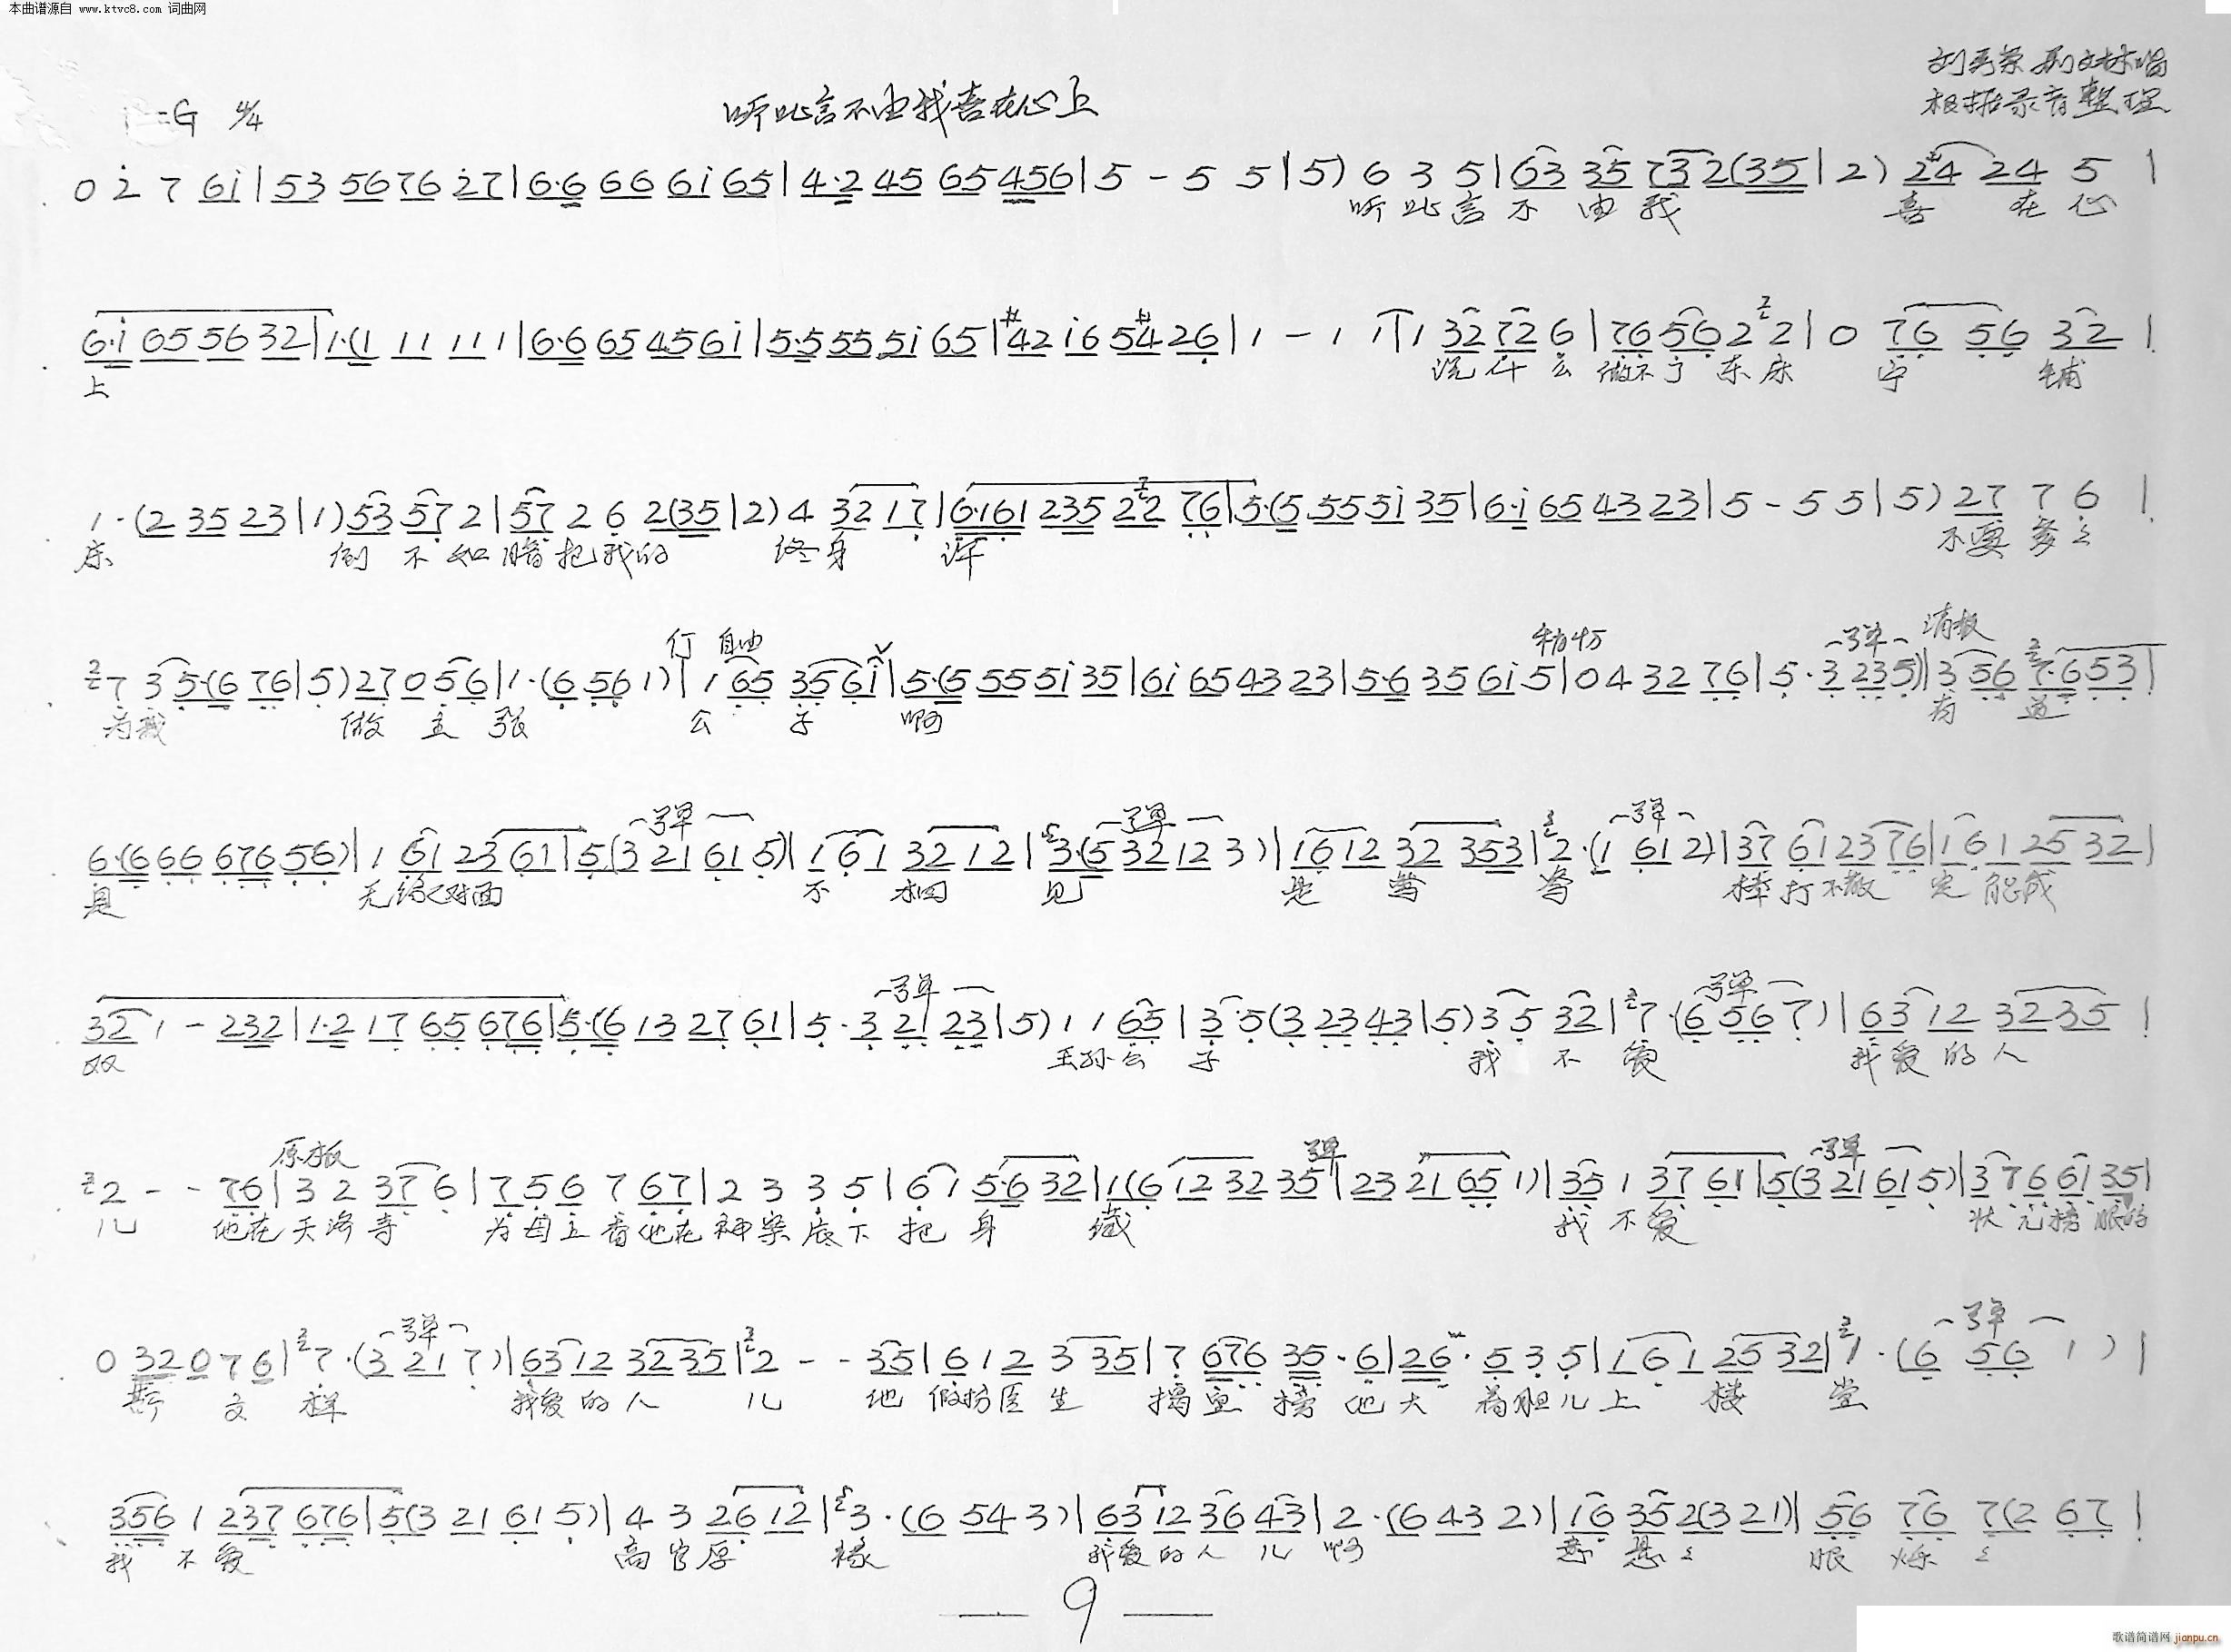 本曲谱源自 www.ktvc8.com 词曲网
根据录音整理
1=G 4/4
听此言不由我喜在心上
0 2̇ 7 6i̇ | 53 56 76 2̇7 | 6·6 66 6i̇ 65 | 4·2 45 65 456 | 5 - 5 5 | 5) 6 3 5 | 63 35 732(35 | 2) 24 24 5 |
听此言不由我 喜在心
6·i̇ 65 56 32 | 1·(1 11 11 1 | 6·6 65 45 6i̇ | 5·5 55 5i̇ 65 | #42 i̇6 5#4 26 | 1 - 1 1 | 1 32 72 6 | 76 56 2 2 | 0 76 56 32 |
上 说什么做不了东床 宁铺
1·(2 35 23 | 1) 53 57 2 | 57 2 6 2(35 | 2) 4 32 17 | 6·161 235 22 76 | 5·(5 55 5i̇ 35 | 6·i̇ 65 43 23 | 5 - 5 5 | 5) 27 7 6 |
床 倒不如 把我的 终身 许 不要多多
行 自由 稍切 弹 清板
7 35·(6 76 | 5) 27 0 56 | 1·(6 56 1) | 1 65 35 6i̇ | 5·(5 55 5i̇ 35 | 6i̇ 65 43 23 | 5·6 35 6i̇ 5 | 0 4 32 76 | 5·3 235) | 3 56 7·6 53 |
为我 做主张 公子 啊 为道
弹 弹 弹
6·(6 66 676 56) | 1 61 23 61 | 5(3 21 61 5) | 1 61 32 12 | 3(5 32 12 3) | 16 12 32 353 | 2·(1 61 2) | 37 61 23 76 | 1 61 25 32 |
是 无缘对面 不相见 是鸳鸯 棒打不散 定能成
弹 弹
32 1 - 232 | 1·2 17 65 676 | 5·(6 13 27 61 | 5·3 21 23 | 5) 1 1 65 | 3·5(3 23 43 | 5) 35 32 | 7·(6 56 7) | 63 12 32 35 |
双 王孙公子 我不爱 我爱的人
原板 弹 弹
2 - - 76 | 3 2 37 6 | 7 5 6 7 67 | 2 3 3 5 | 61 5·6 32 | 1(6 12 32 35 | 23 21 65 1) | 35 1 37 61 | 5(3 21 61 5) | 37 6 61 35 |
儿 他在天 寺 为母立香他在神案底下把身藏 我不爱 状元榜眼的
弹 弹
0 32 0 7 6 | 7·(3 21 7) | 63 12 32 35 | 2 - - 35 | 6 1 2 3 35 | 7 676 35·6 | 26·5 3 5 | 1 61 25 32 | 1·(6 56 1) |
斯文样 我爱的人儿 他假扮医生 揭皇榜他大着胆儿上楼堂
356 1 237 676 | 5(3 21 61 5) | 4 3 26 12 | 3·(6 54 3) | 63 12 36 43 | 2·(6 43 2) | 16 35 2(3 21) | 56 76 7(2 67 |
我不爱 高官厚禄 我爱的人儿啊 眼
— 9 —
歌谱简谱网 jianpu.cn